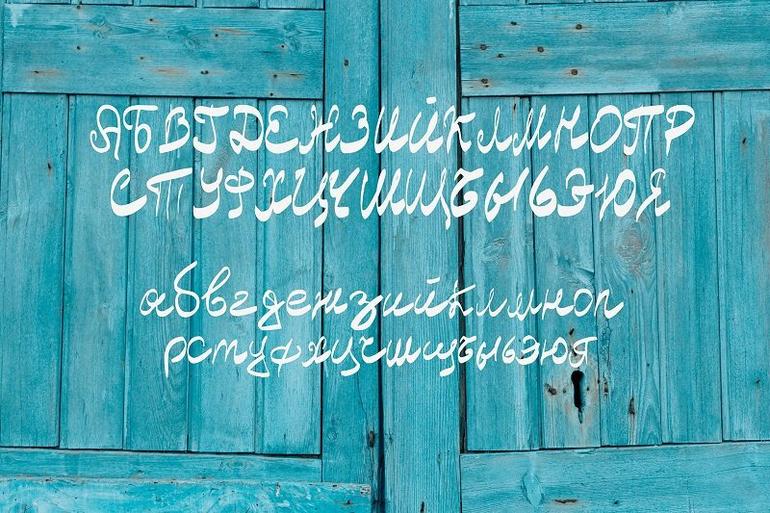 АБВГДЕНЗИЙКЛМНОПР
СТУФХЦЧШЩЪЫЬЭЮЯ
абвгдежзийклмноп
рстуфхцчшщъыьэюя